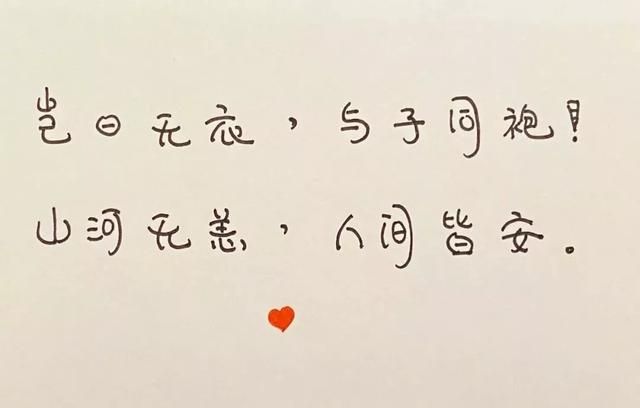 岂曰无衣，与子同袍！
山河无恙，人间皆安。